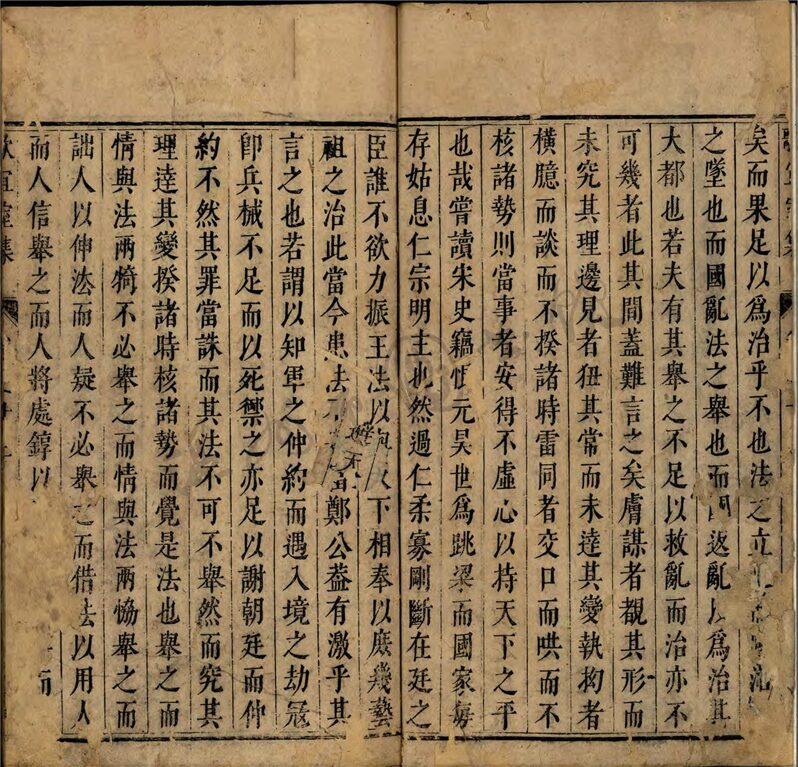 矣而果足以爲治乎不也法之立
之墜也而國亂法之舉也而返亂以爲治其
大都也若夫有其舉之不足以救亂而治亦不
可幾者此其間蓋難言之矣膚謀者覩其形而
未究其理邊見者狃其常而未達其變執拘者
橫臆而談而不揆諸時雷同者交口而哄而不
核諸勢則當事者安得不虛心以持天下之平
也哉嘗讀宋史竊恠元昊世爲跳梁而國家每
存姑息仁宗明主也然過仁柔寡剛斷在廷之
臣誰不欲力振王法以下相奉以庶幾藝
祖之治此當今患法不鄭公葢有激乎其
言之也若謂以知軍之仲約而遇入境之劫冦
卽兵械不足而以死禦之亦足以謝朝廷而仲
約不然其罪當誅而其法不可不舉然而究其
理達其變揆諸時核諸勢而覺是法也舉之而
情與法兩犄不必舉之而情與法兩恊舉之而
詘人以伸法而人疑不必舉之而借法以用人
而人信舉之而人將處錞以而